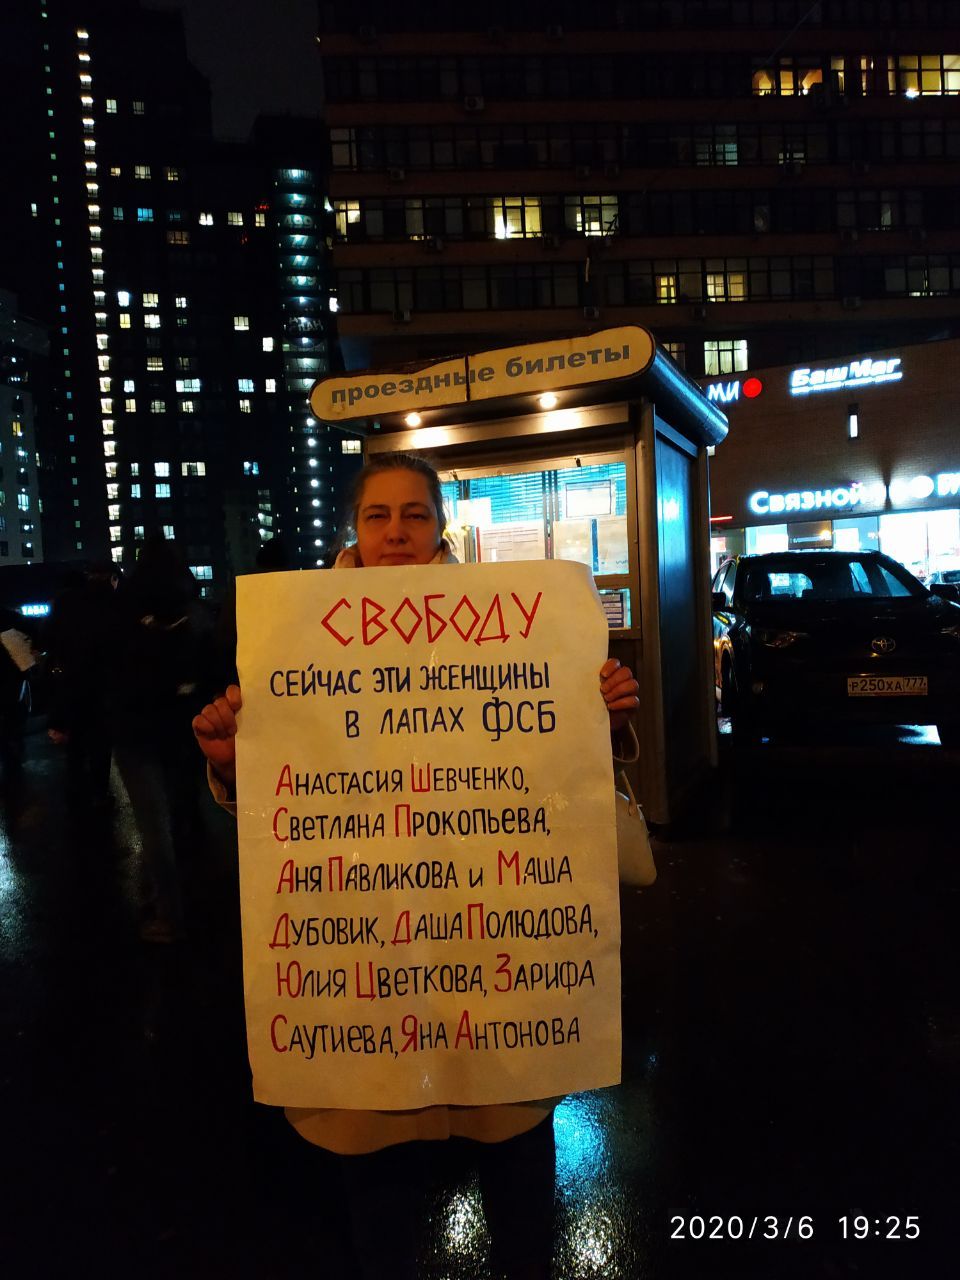 проездные билеты
МИ
БашМаг
Связной
СВОБОДУ
СЕЙЧАС ЭТИ ЖЕНЩИНЫ
В ЛАПАХ ФСБ
АНАСТАСИЯ ШЕВЧЕНКО,
СВЕТЛАНА ПРОКОПЬЕВА,
АНЯ ПАВЛИКОВА и МАША
ДУБОВИК, ДАША ПОЛЮДОВА,
ЮЛИЯ ЦВЕТКОВА, ЗАРИФА
САУТИЕВА, ЯНА АНТОНОВА
Р250ХА 777
2020/3/6 19:25